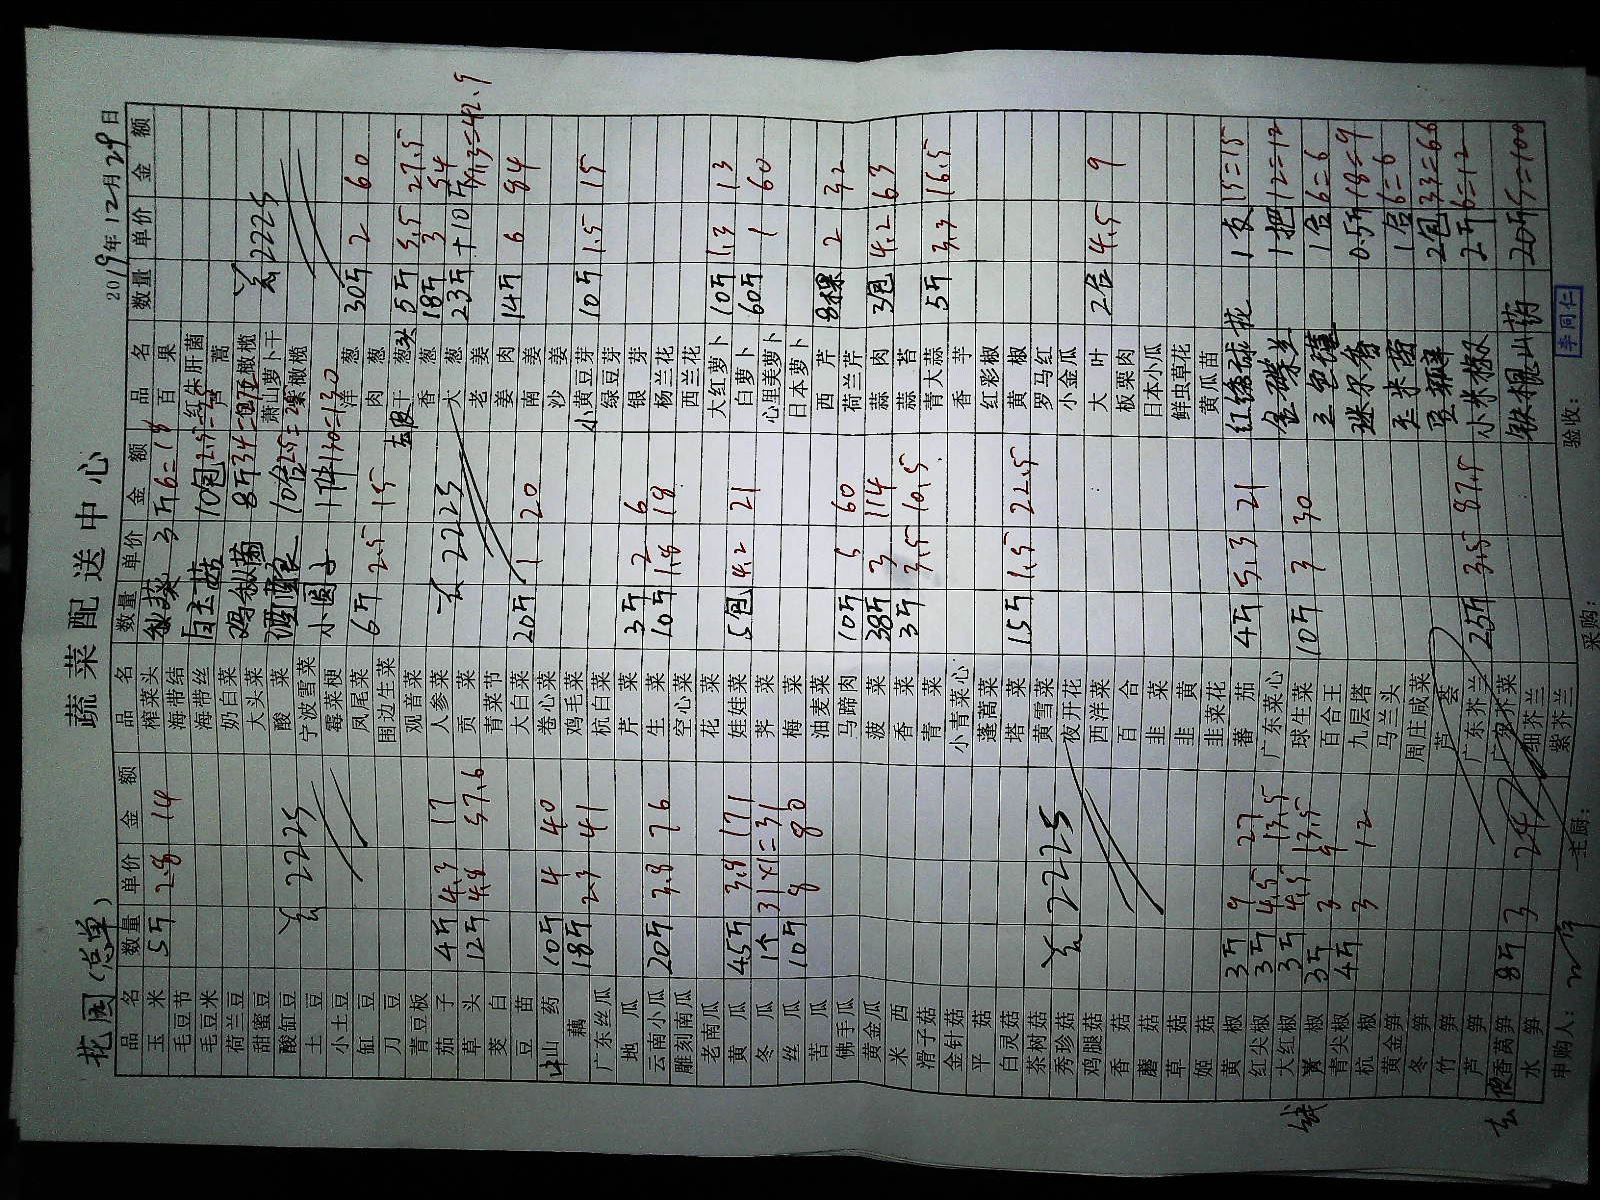 蔬菜配送中心
花园(总单) 2019年12月29日
品名 数量 单价 金额 品名 数量 单价 金额 品名 数量 单价 金额
玉米 5斤 2.8 14 榨菜头 秋葵 3斤6=18 百果
毛豆节 海带结 白玉菇 10包2.5=25 红朱肝菌
毛豆米 海带丝 蒿
荷兰豆 奶白菜 鸡枞菌 8斤34=272 橄榄
甜蜜豆 大头菜 萧山萝卜干 去2225
酸豇豆 去2225 酸菜 酒酿 10合2.5=25 紫橄榄
土豆 宁波雪菜 小圆子 1件130=130
小土豆 霉菜梗 洋葱 30斤 2 60
豇豆 凤尾菜 6斤 2.5 15 肉葱
刀豆 围边生菜 去皮干葱头 5斤 5.5 27.5
青豆板 观音菜 香葱 18斤 3 54
茄子 4斤 4.3 17 人参菜 去2225 大葱 23斤+10斤 ×1.3=42.9
草头 12斤 4.8 57.6 贡菜 老姜
茭白 青菜节 姜肉 14斤 6 84
豆苗 大白菜 20斤 1 20 南姜
山药 10斤 4 40 卷心菜 沙姜
藕 18斤 2.3 41 鸡毛菜 小黄豆芽 10斤 1.5 15
广东丝瓜 杭白菜 绿豆芽
地瓜 芹菜 3斤 2 6 银芽
云南小瓜 20斤 3.8 76 生菜 10斤 1.8 18 杨兰花
雕刻南瓜 空心菜 西兰花
老南瓜 花菜 大红萝卜 10斤 1.3 13
黄瓜 45斤 3.8 171 娃娃菜 5包 4.2 21 白萝卜 60斤 1 60
冬瓜 1个 31×1=31 荠菜 心里美萝卜
丝瓜 10斤 8 80 梅菜 日本萝卜
苦瓜 油麦菜 西芹 8棵 2 32
佛手瓜 马蹄肉 10斤 60 荷兰芹
黄金瓜 菠菜 38斤 3 114 蒜肉 4.2 63
米西 香菜 3斤 3.5 10.5 蒜苔
滑子菇 青菜 青大蒜 5斤 3.3 16.5
金针菇 小青菜心 香芋
平菇 蓬蒿菜 红彩椒
白灵菇 塔菜 15斤 1.5 22.5 黄椒
茶树菇 黄雪菜 罗马红
秀珍菇 去2225 夜开花 小金瓜
鸡腿菇 西洋菜 大叶 2合 4.5 9
香菇 百合 板栗肉
蘑菇 韭菜 日本小瓜
草菇 韭黄 鲜虫草花
姬菇 韭菜花 黄瓜苗
黄椒 3斤 9 27 番茄 4斤 5.3 21 红绣球花 1支 15=15
红尖椒 3斤 4.5 13.5 广东菜心 金蝶兰 1把 12=12
大红椒 3斤 4.5 13.5 球生菜 10斤 3 30 三色堇 1合 6=6
椒 3斤 3 9 百合王 迷尔香 0.5斤 18=9
青尖椒 4斤 3 12 九层塔 玉米苗 1合 6=6
杭椒 马兰头 2包 33=66
黄金笋 周庄咸菜 小米椒 2斤 6=12
冬笋 芦荟
竹笋 广东芥兰 25斤 3.5 87.5 铁棍山药 20斤 5=100
芦笋 广东芥菜
去皮香莴笋 8斤 3 24 细芥兰
水笋 紫芥兰
申购人: 主厨: 采购: 验收: 李同仁